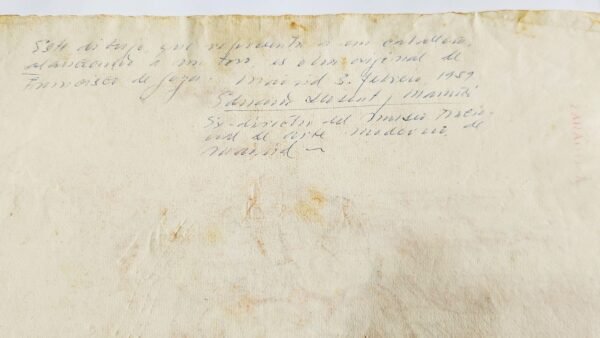 Este dibujo, que representa a un caballero,
alanceando a un toro, es obra original de
Francisco de Goya. Madrid 3. febrero, 1959
Eduardo Llosent y Marañón
Ex-director del Museo Nacio-
nal de arte moderno, de
Madrid